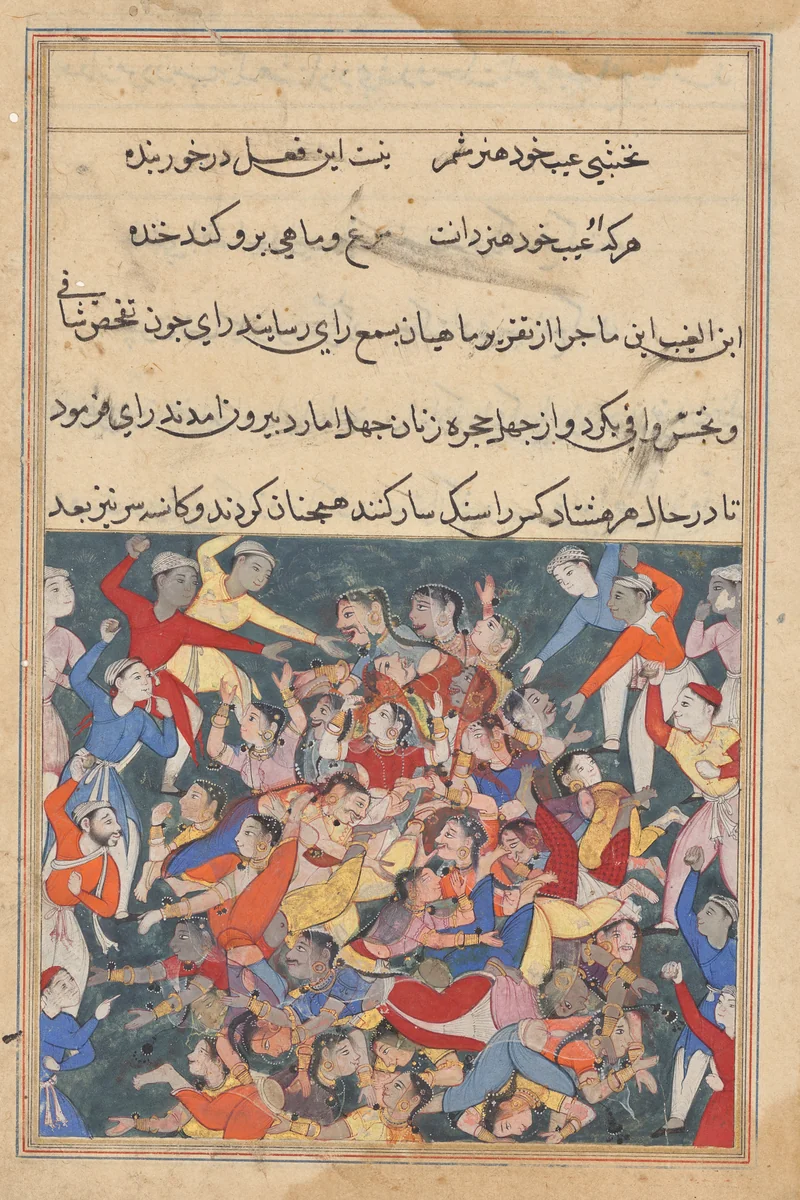 نخشبی عیب خود هنر مشمر نیست این فعل در خور بنده
هرکه او عیب خود هنر دانست مرغ و ماهی برو کند خنده
ابن الغیب این ماجرا از تقریر ماهیان بسمع رای رسایند رای جون تفحص شافی
و تجسّس وافی بکرد و از جهل حجره زنان جهل امارد بیرون امدند رای فرمود
تا در حال هر هشتاد کس را سنک سار کنند همجنان کردند و کاسه سر نیز بعد